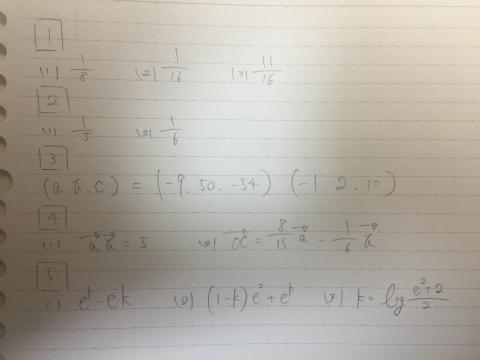 1
(1) 1/8 (2) 1/16 (3) 11/16
2
(1) 1/3 (2) 1/6
3
(a.b.c) = (-9.50.-54) (-1.2.10)
4
(1) a⃗b⃗ = 5 (2) = 8/15 a⃗ - 1/6 b⃗
5
(1) e^k - ek (2) (1-k)e² + e^k (3) k = log (e²+2)/2